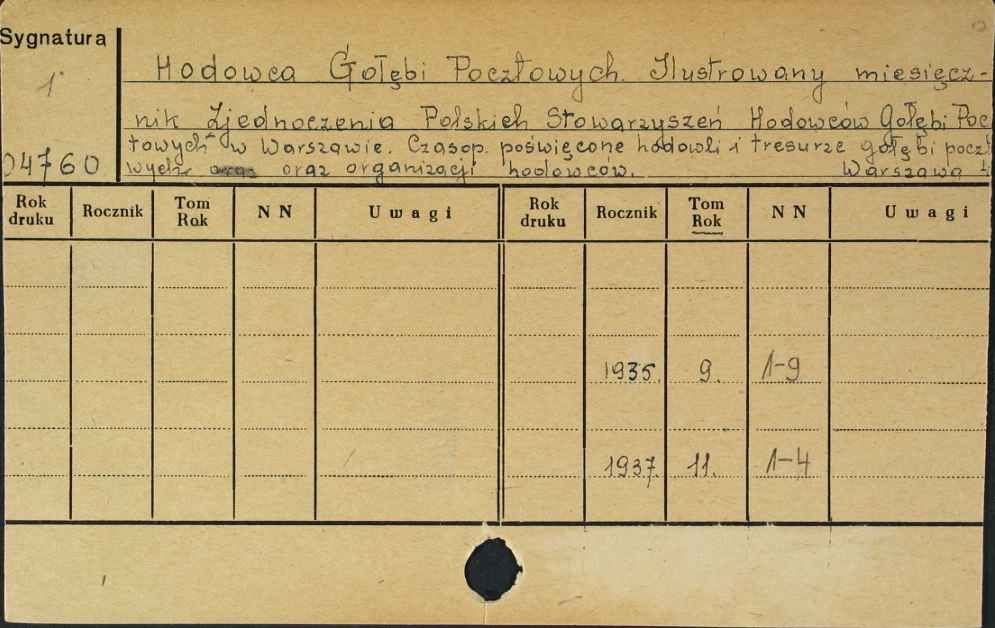 Sygnatura
1
04760
Hodowca Gołębi Pocztowych. Ilustrowany miesięcz-
nik Zjednoczenia Polskich Stowarzyszeń Hodowców Gołębi Poc
towych w Warszawie. Czasop. poświęcone hodowli i tresurze gołębi poczt
wych oraz organizacji hodowców. Warszawa
Rok druku Rocznik Tom Rok N N Uwagi Rok druku Rocznik Tom Rok N N Uwagi
1935. 9. 1-9
1937. 11. 1-4